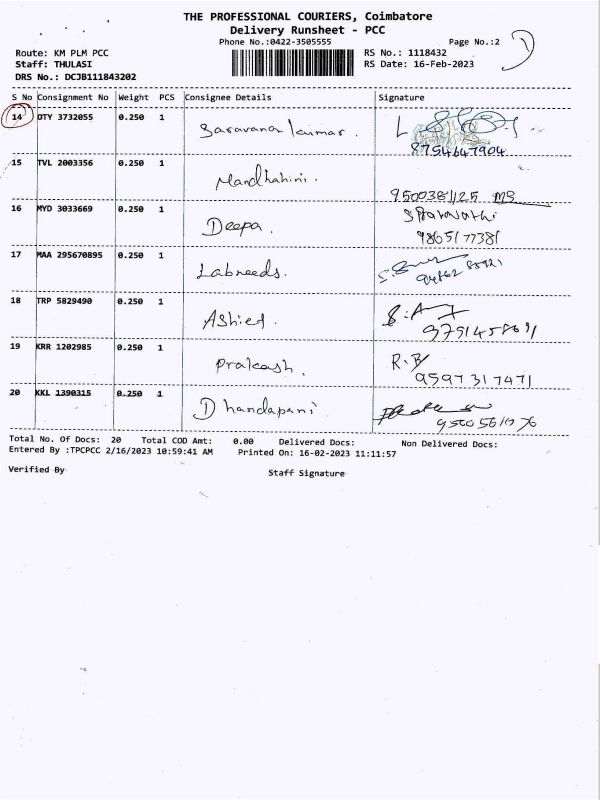 THE PROFESSIONAL COURIERS, Coimbatore
Delivery Runsheet - PCC
Phone No.:0422-3505555 Page No.:2
Route: KM PLM PCC RS No.: 1118432
Staff: THULASI RS Date: 16-Feb-2023
DRS No.: DCJB111843202
S No Consignment No Weight PCS Consignee Details Signature
14 OTY 3732055 0.250 1 Saravana kumar.
8754647904
15 TVL 2003356 0.250 1 Mandhahini.
9500381125 MS
16 MYD 3033669 0.250 1 Deepa.
9865177381
17 MAA 295670895 0.250 1 Labneeds.
18 TRP 5829490 0.250 1 Ashied.
19 KRR 1202985 0.250 1 Prakash. R.B
9597317471
20 KKL 1390315 0.250 1 Dhandapani.
Total No. Of Docs: 20 Total COD Amt: 0.00 Delivered Docs: Non Delivered Docs:
Entered By :TPCPCC 2/16/2023 10:59:41 AM Printed On: 16-02-2023 11:11:57
Verified By Staff Signature